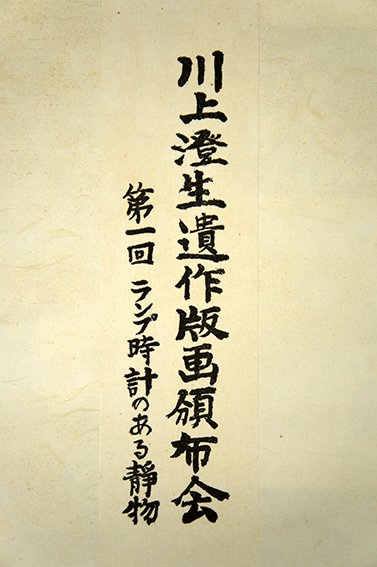 川上澄生遺作版画頒布会
第一回 ランプ時計のある靜物